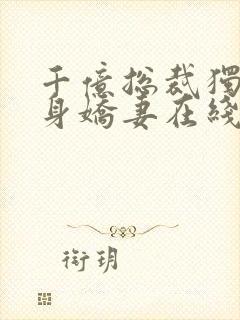 千億总裁獨
身嬌妻在綫
衔玥